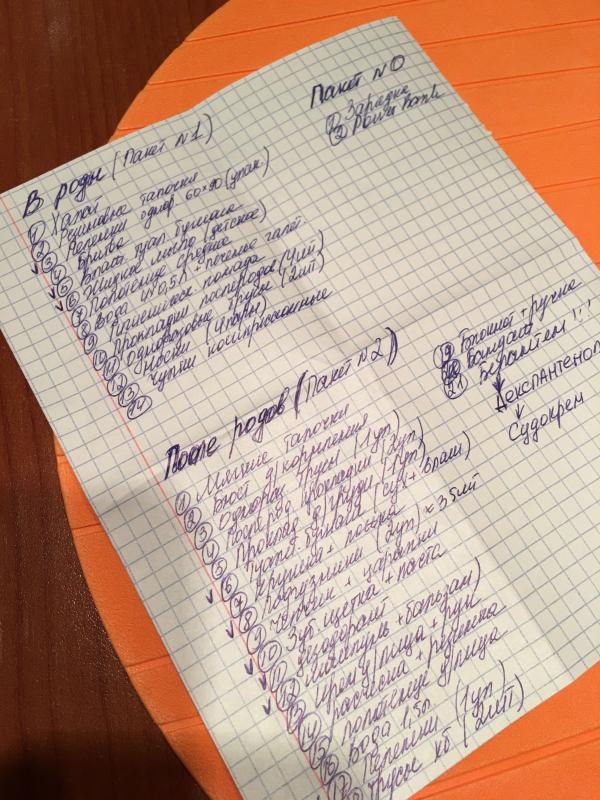 Пакет №0
① Зарядка
② Power bank
В роды (Пакет №1)
① Халат
② Резиновые тапочки
③ Пеленки однор 60×90 (упак.)
④ Бритва
⑤ Влаж. туал. бумага
⑥ Жидкое мыло (детское)
⑦ Полотенце среднее
⑧ Вода 4×0,5л + печенье галет.
⑨ Гигиеническая помада
⑩ Прокладки послеродов (4шт)
⑪ Одноразовые трусы (2шт)
⑫ Носки (4 пары)
Чулки компрессионные
После родов (Пакет №2)
① Мягкие тапочки
② Бюст д/кормления
③ Однораз. трусы (1уп)
④ Послерод. прокладки (2уп)
⑤ Проклад д/груди (1уп)
⑥ Туал. бумага (сух + влаж)
⑦ Кружка + ложка
⑧ Подгузники (2уп) ≈ 35шт
⑨ Чепчик + царапки
⑩ Зуб щетка + паста
⑪ Дезодорант
⑫ Шампунь + бальзам)
⑬ Крем д/лица + рук
⑭ расческа + резинка
⑮ полотенце д/лица
⑯ Вода 1,5л.
⑰ Пеленки (1уп)
Трусы хб (2шт)
⑲ Блокнот + ручка
⑳ Бандаж
㉑ Бепантен !!!
Декспантенол
Судокрем